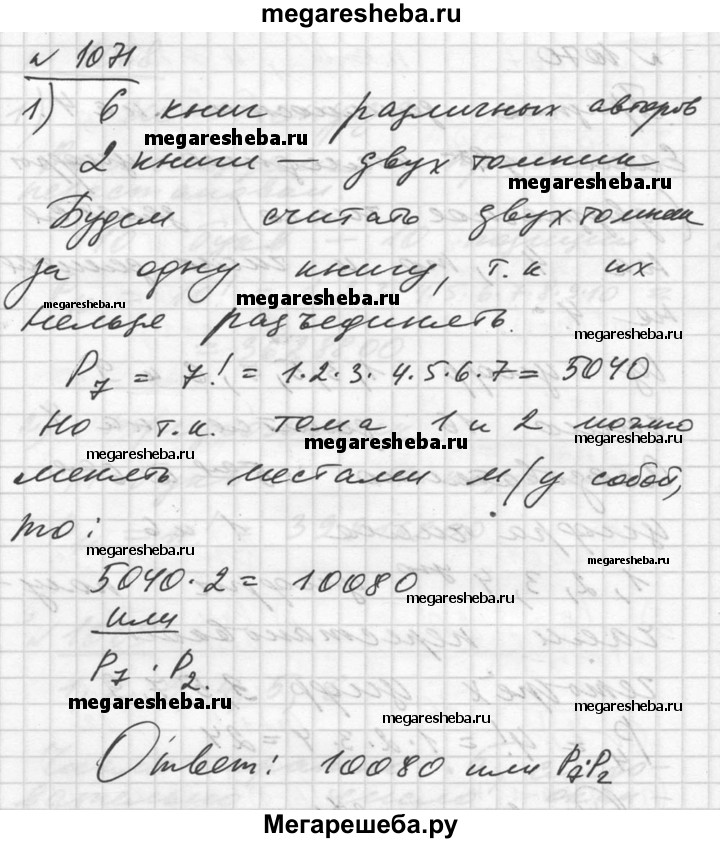 megaresheba.ru
№ 1071
1) 6 книг различных авторов
megaresheba.ru
2 книги — двух томник
megaresheba.ru
Будем считать двухтомник
за одну книгу, т.к их
megaresheba.ru megaresheba.ru
нельзя разъединять.
megaresheba.ru
P₇ = 7! = 1·2·3·4·5·6·7 = 5040
Но т.к. тома 1 и 2 можно
megaresheba.ru megaresheba.ru megaresheba.ru
менять местами м/у собой,
то:
megaresheba.ru
megaresheba.ru
5040·2 = 10080
megaresheba.ru
или
P₇·P₂.
megaresheba.ru megaresheba.ru megaresheba.ru
Ответ: 10080 или P₇·P₂
Мегарешеба.ру